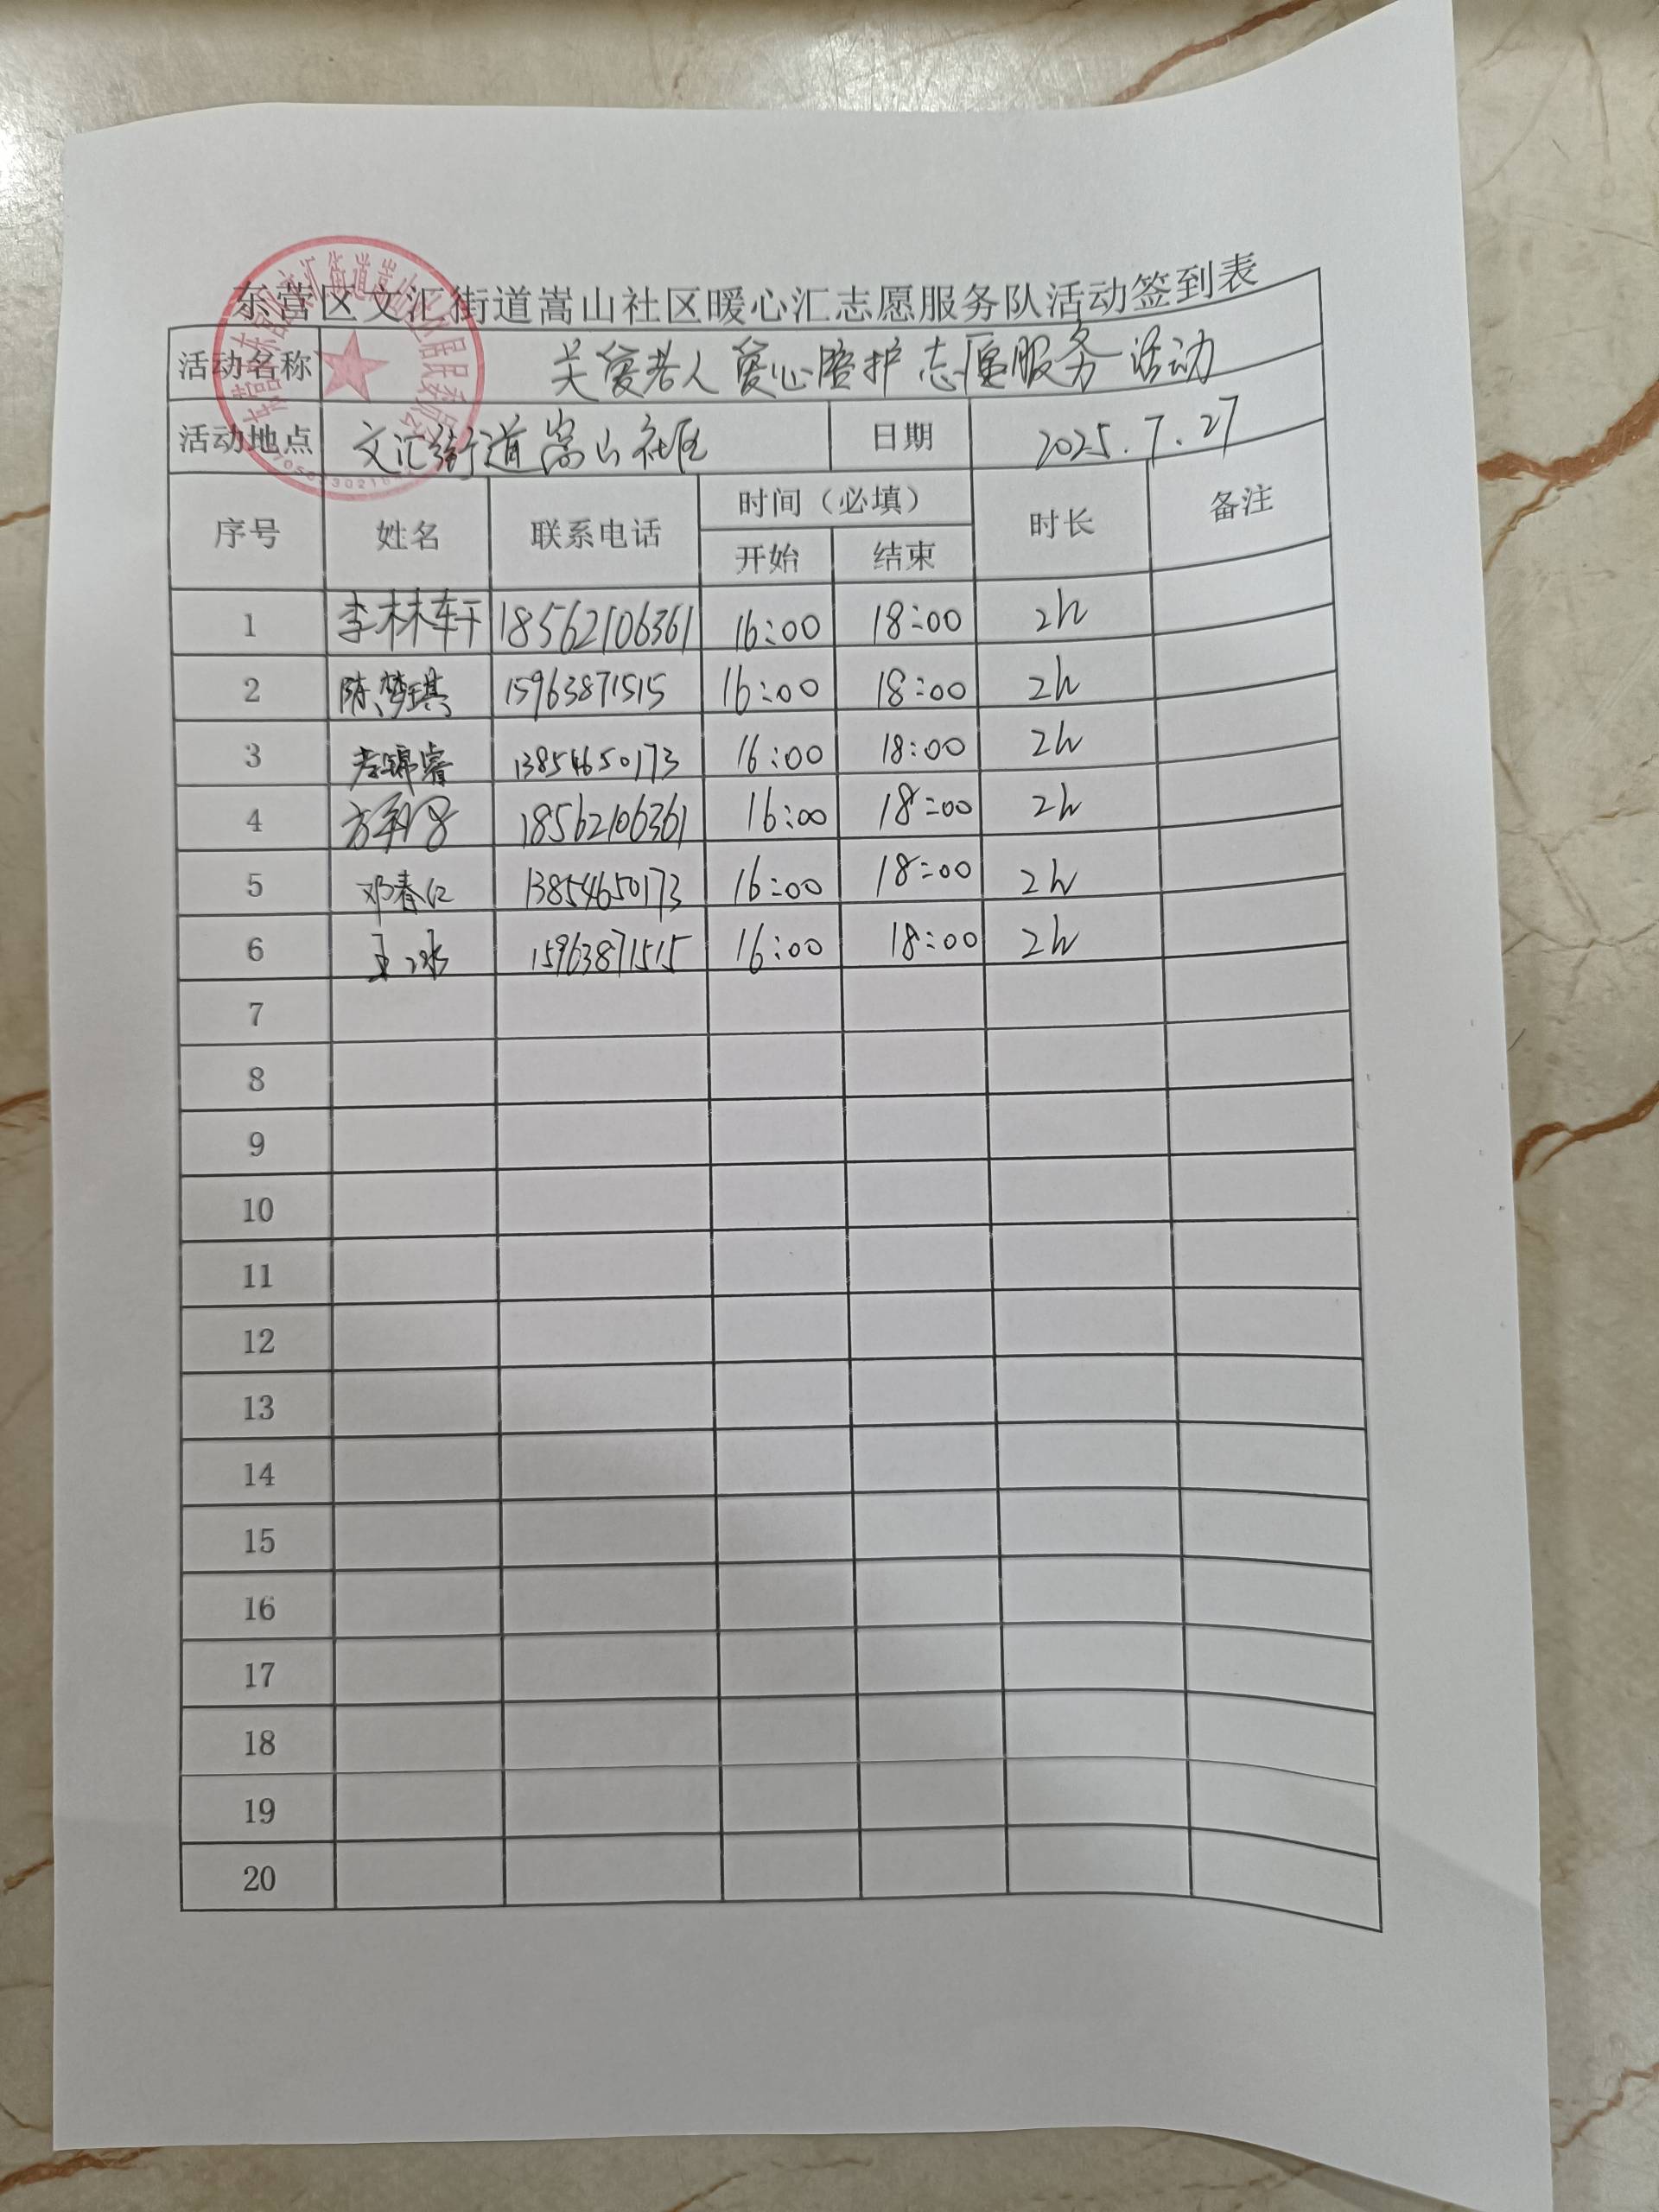 东营区文汇街道嵩山社区暖心汇志愿服务队活动签到表
活动名称 关爱老人爱心陪护志愿服务活动
活动地点 文汇街道嵩山社区 日期 2025.7.27
序号 姓名 联系电话 时间（必填） 时长 备注
开始 结束
1 李林轩 18562106361 16:00 18:00 2h
2 陈梦琪 15963871515 16:00 18:00 2h
3 李锦睿 13854650173 16:00 18:00 2h
4 18562106361 16:00 18:00 2h
5 邓春仁 13854650173 16:00 18:00 2h
6 王冰 15963871515 16:00 18:00 2h
7
8
9
10
11
12
13
14
15
16
17
18
19
20